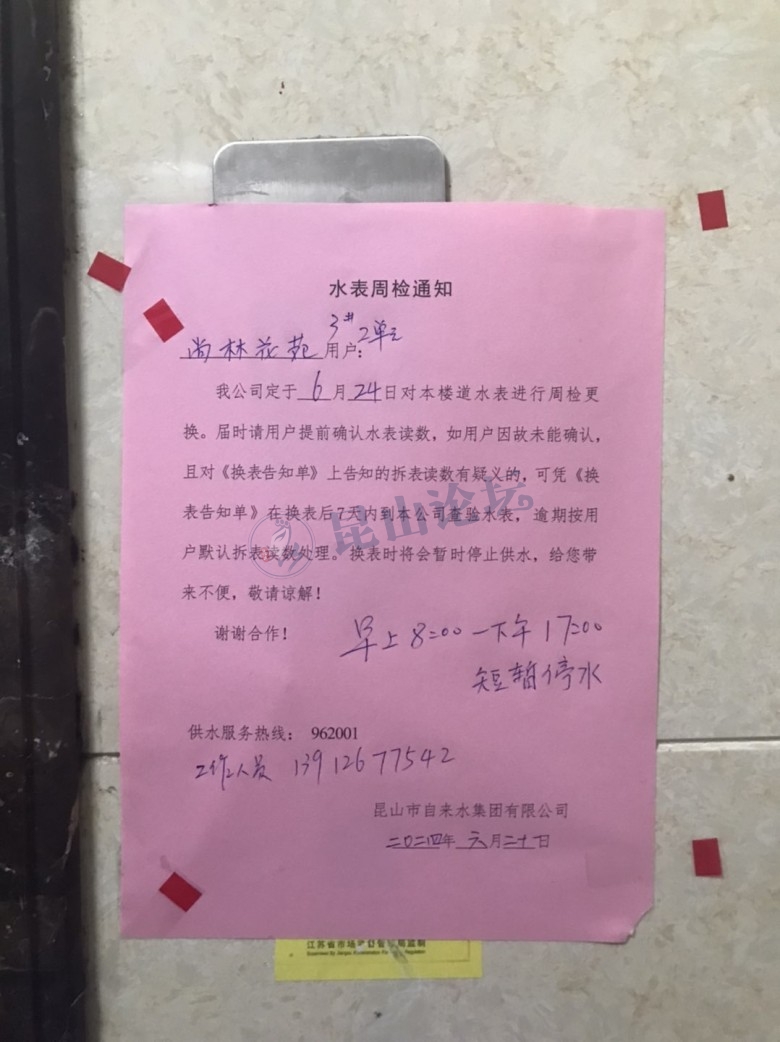 水表周检通知
3#2单元
尚林花苑用户：
我公司定于6月24日对本楼道水表进行周检更
换。届时请用户提前确认水表读数，如用户因故未能确认，
且对《换表告知单》上告知的拆表读数有疑义的，可凭《换
表告知单》在换表后7天内到本公司查验水表，逾期按用
户默认拆表读数处理。换表时将会暂时停止供水，给您带
来不便，敬请谅解！
谢谢合作！
早上8:00—下午17:00
短暂停水
供水服务热线：962001
工作人员 13912677542
昆山市自来水集团有限公司
二〇二四年六月二十日
昆山论坛
江苏省市场
局监制